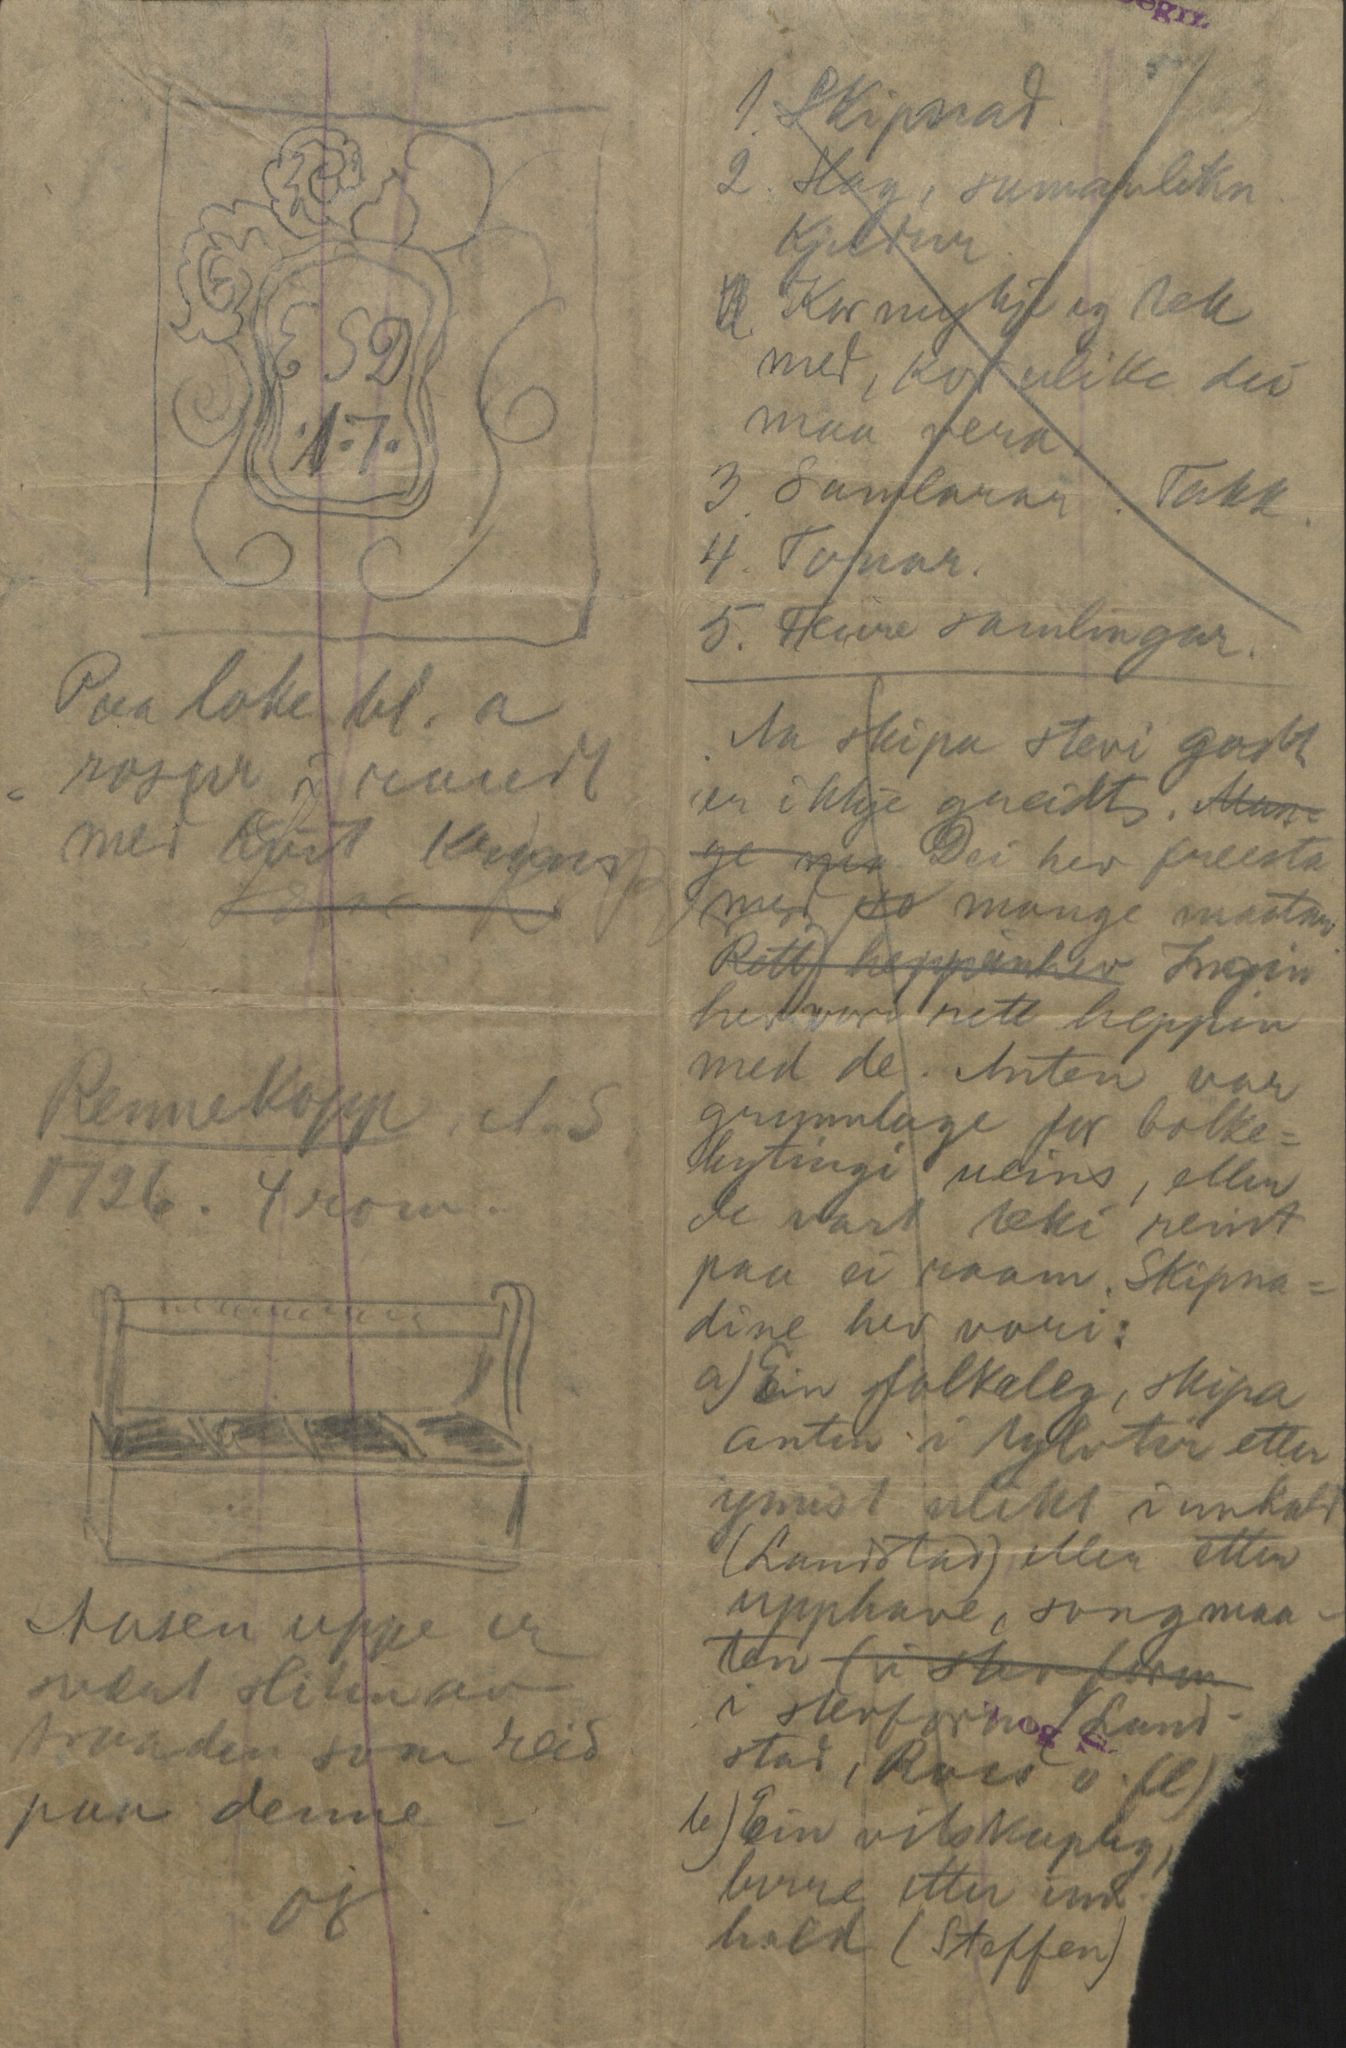 E S D
1.7.
Paa loke bl. a
rosur i raudt
med kvit
Rennekopp. A. S
1726. 4 rom.
Aasen uppe er
svært slitin av
traaden som reid
paa denne –
1. Skipnad.
2. Slag, samanlikn.
Kjeldur.
Kor mykje eg tek
med, kor ulike dei
maa vera.
3. Samlarar. Takk.
4. Tonar.
5. Fleire samlingar.
Aa skipa stevi godt
er ikkje greidt. Man=
ge Dei hev freista
med so mange maatar.
Rett heppin hev Ingin
hev vori rett heppin
med de. Anten var
grunnlage for bolke=
bytingi veins, eller
de vart teki reint
paa ei raam. Skipna=
dine hev vori:
a) Ein folkeleg, skipa
anten i tylvtir etter
ymist slikt innhald
(Landstad) eller etter
upphave, songmaa-
ten (i stevform
i stevform (Land-
stad, Ross o. fl)
b) Ein vitskapleg,
berre etter inn
hald (Steffen)